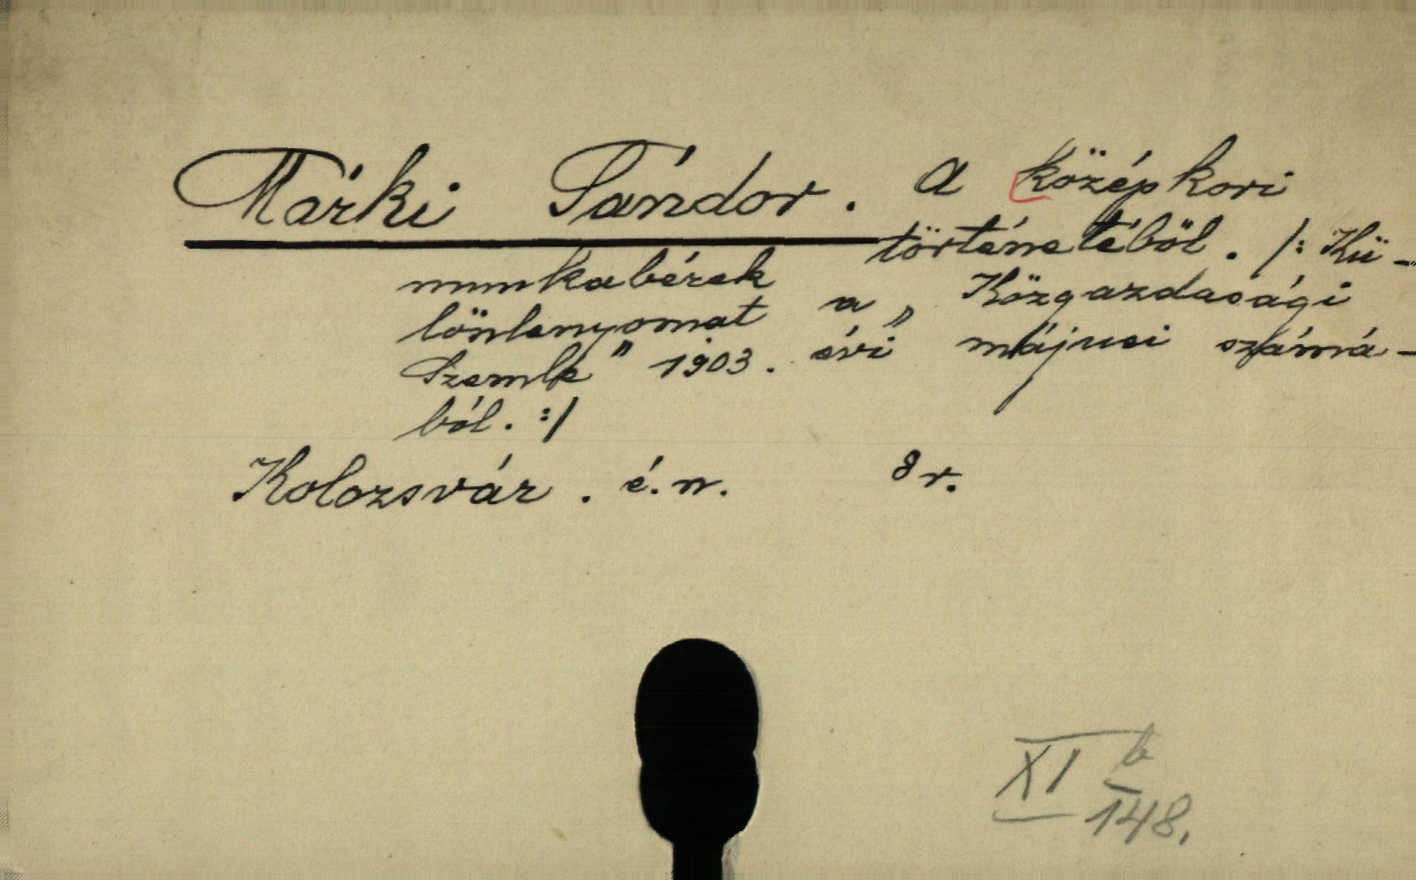 Márki Sándor. A középkori
munkabérek történetéből. /: Kü-
lönlenyomat a „Közgazdasági
Szemle" 1903. évi májusi számá-
ból. :/
Kolozsvár. é.n. 8r.
XI b
148.